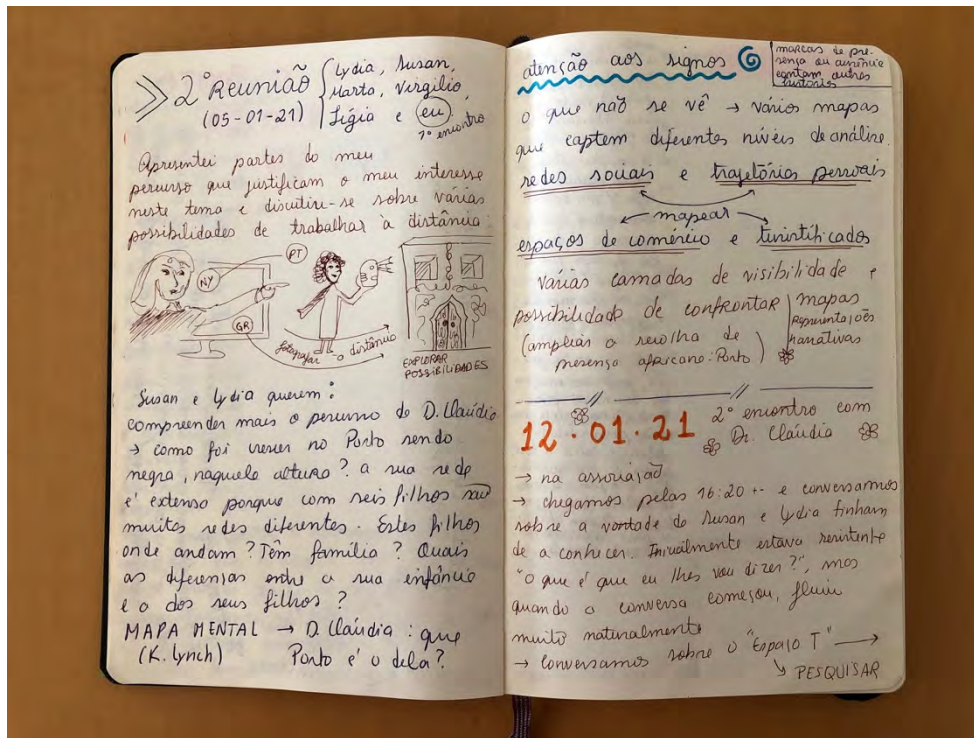 2ª Reunião
(05-01-21)
Lydia, Susan,
Marta, Virgílio,
Lígia e eu
1º encontro
Apresentei partes do meu
percurso que justificam o meu interesse
neste tema e discutiu-se sobre várias
possibilidades de trabalhar à distância:
NY
PT
GR
fotografar a distância
EXPLORAR
POSSIBILIDADES
Susan e Lydia querem:
compreender mais o percurso da D. Claúdia
→ como foi crescer no Porto sendo
negra, naquela altura? a sua rede
é extensa porque com seis filhos são
muitas redes diferentes. Estes filhos
onde andam? Têm família? Quais
as diferenças entre a sua infância
e a dos seus filhos?
MAPA MENTAL → D. Claúdia: que
(K. Lynch) Porto é o dela?
atenção aos signos
marcas de pre-
sença ou ausência
contam outras
histórias
o que não se vê → vários mapas
que captem diferentes níveis de análise.
redes sociais e trajetórias pessoais
← mapear →
espaços de comércio e turistificados
Várias camadas de visibilidade e
possibilidade de confrontar
mapas
Representações
narrativas
(ampliar a recolha de
presença africana: Porto)
12.01.21
2º encontro com
D. Claúdia
→ na associação
→ chegamos pelas 16:20 +- e conversamos
sobre a vontade da Susan e Lydia tinham
de a conhecer. Inicialmente estava resistente
"O que é que eu lhes vou dizer?", mas
quando a conversa começou, fluiu
muito naturalmente
→ conversamos sobre o "Espaço T" →
↳ PESQUISAR